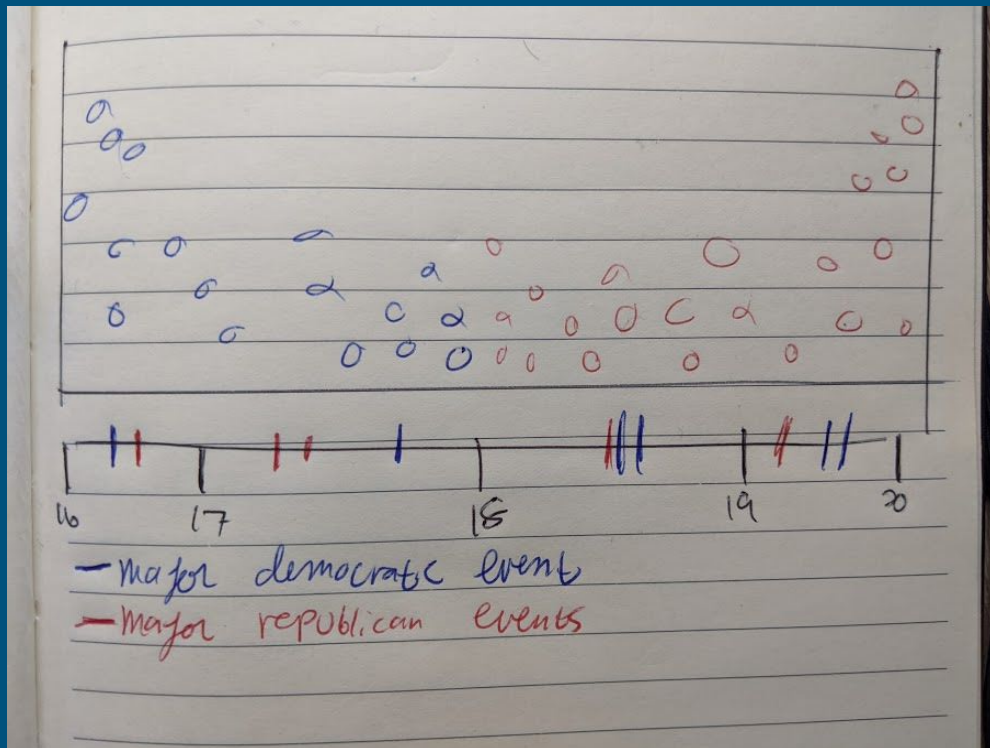 16 17 18 19 20
— major democratic event
— major republican events